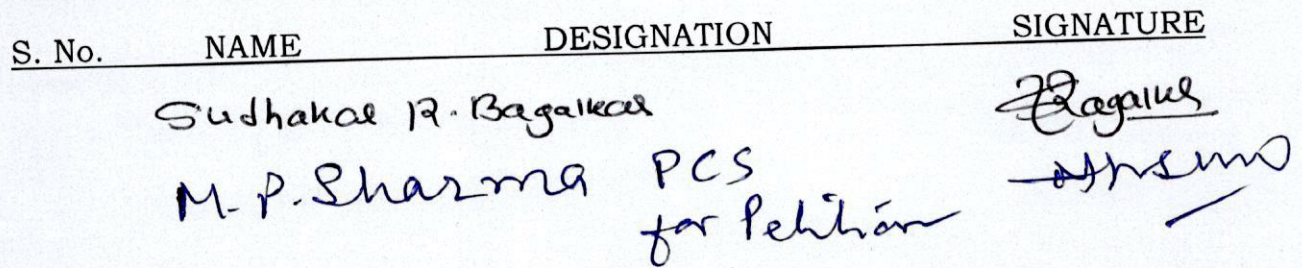 S. No. NAME DESIGNATION SIGNATURE
Sudhakar R. Bagalkar
M. P. Sharma PCS
for Petition